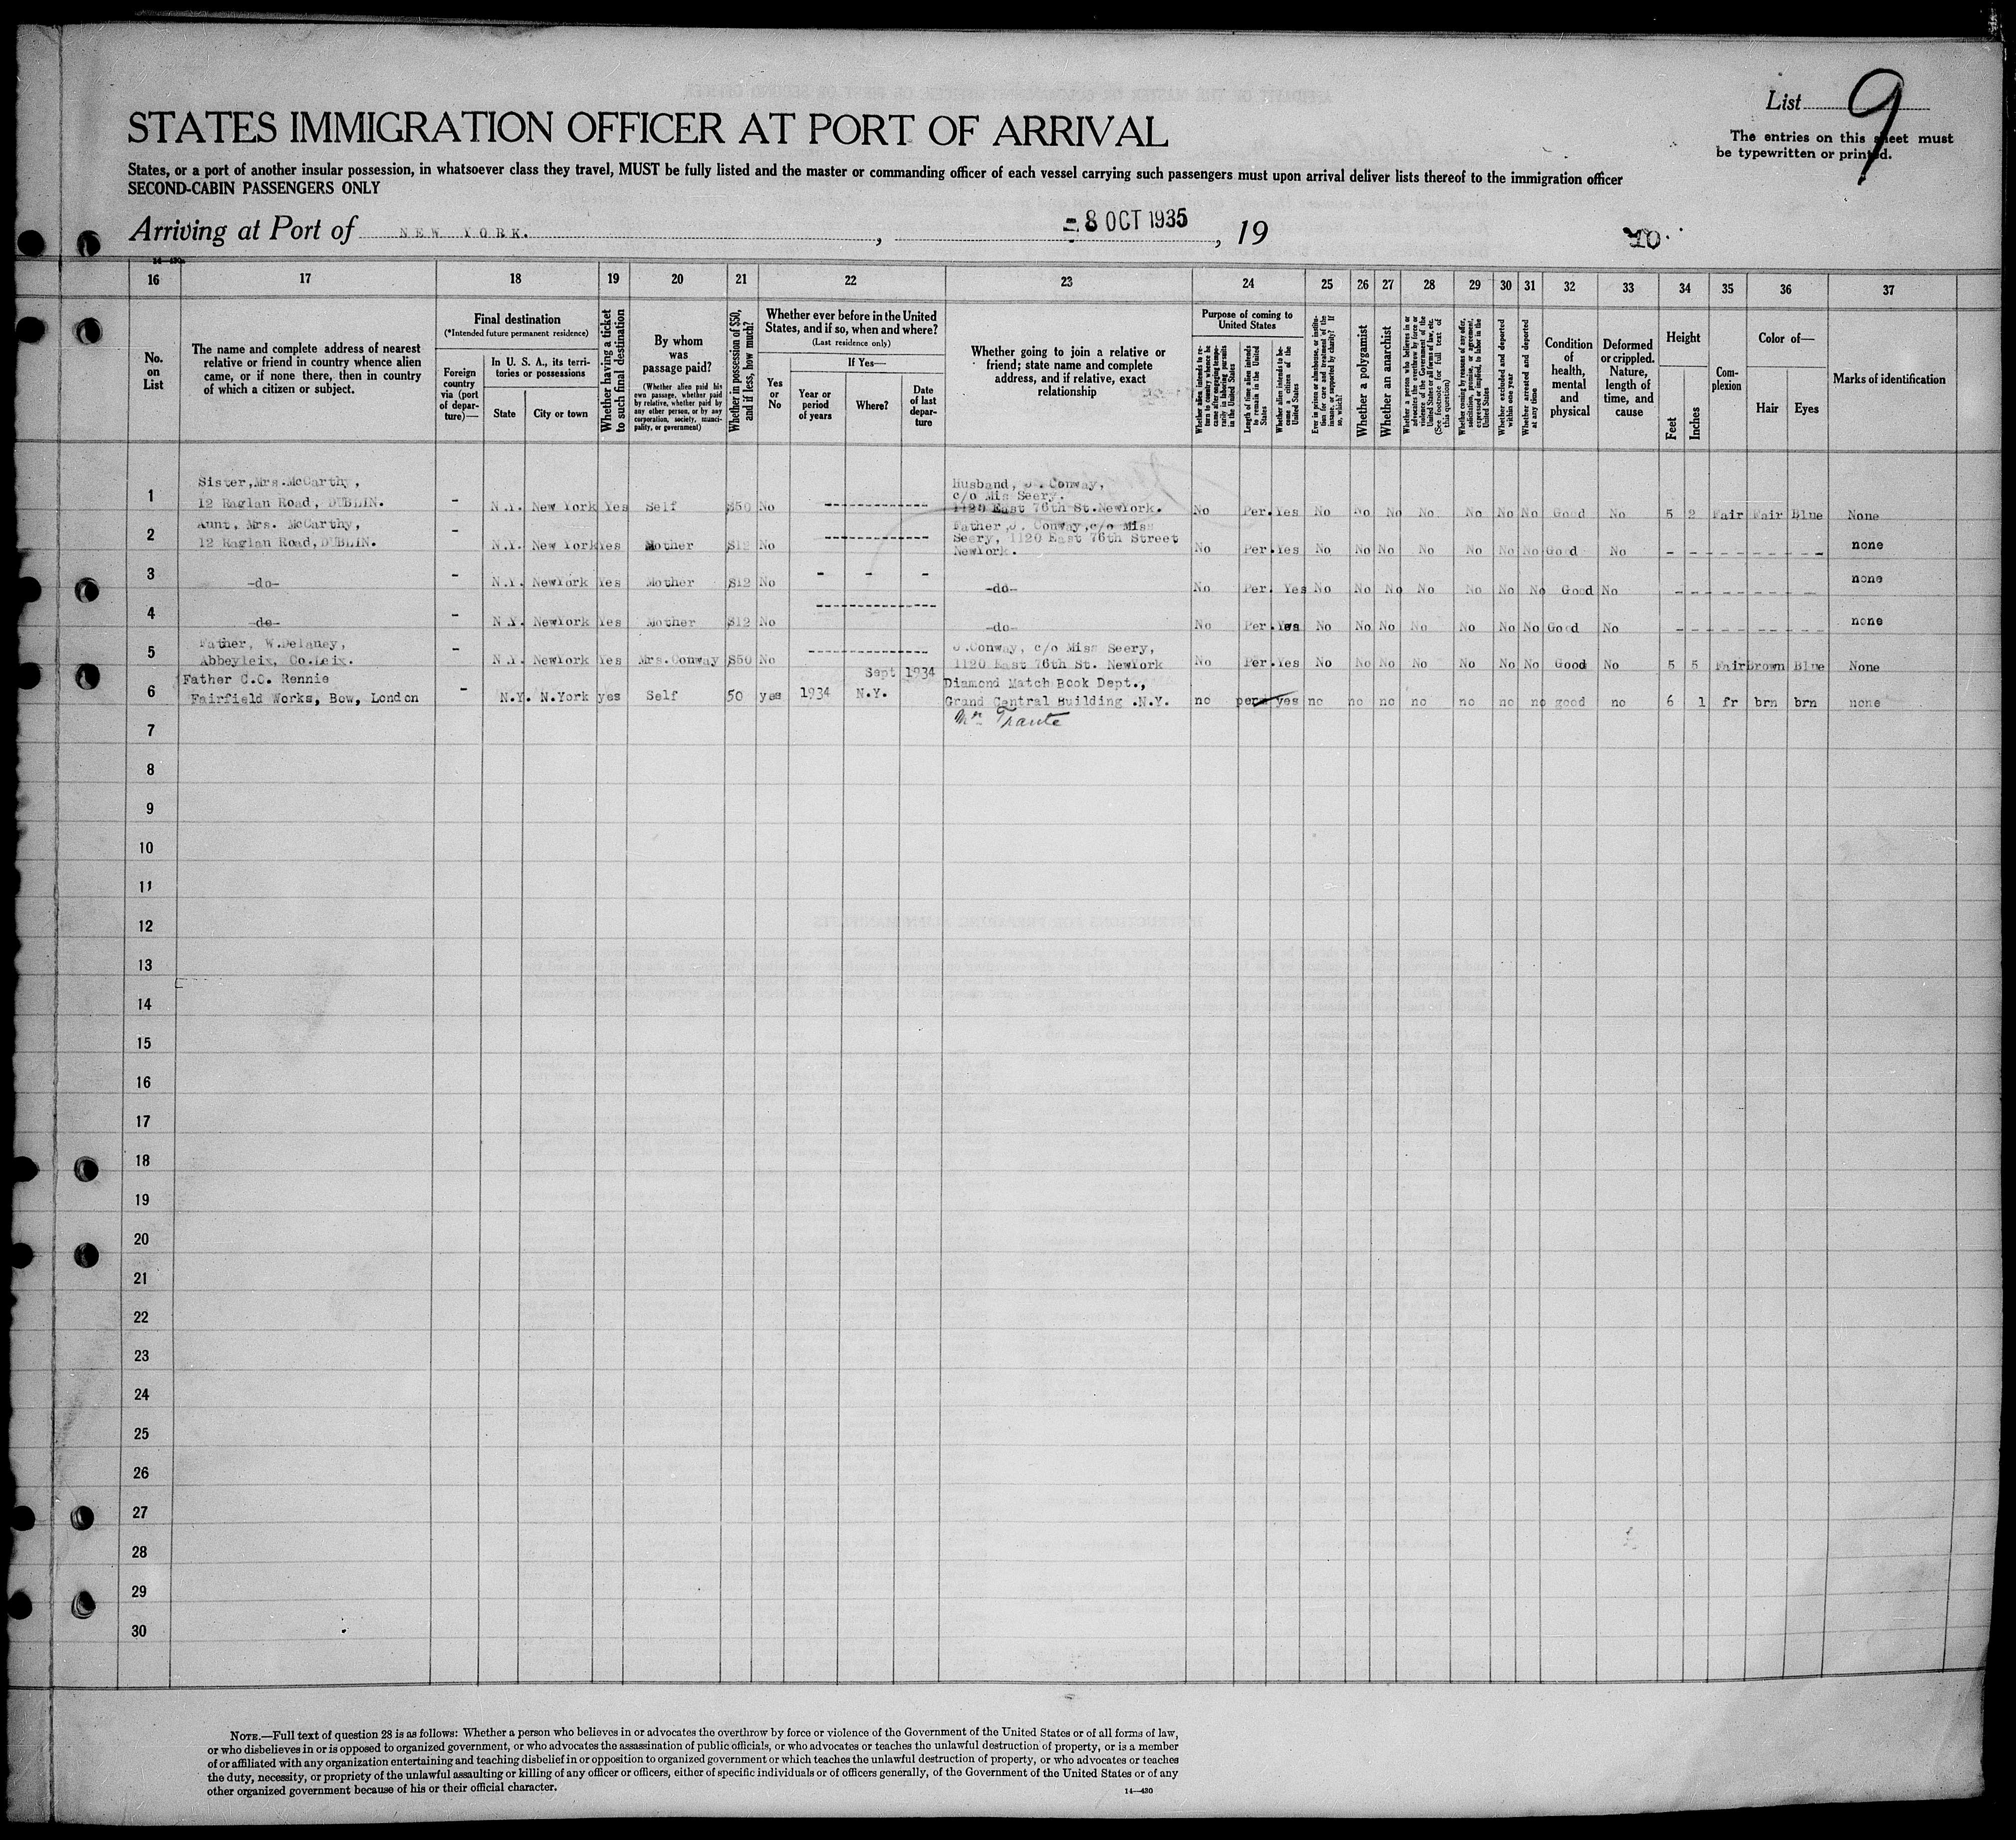 List 9
STATES IMMIGRATION OFFICER AT PORT OF ARRIVAL
The entries on this sheet must
be typewritten or printed.
States, or a port of another insular possession, in whatsoever class they travel, MUST be fully listed and the master or commanding officer of each vessel carrying such passengers must upon arrival deliver lists thereof to the immigration officer
SECOND-CABIN PASSENGERS ONLY
Arriving at Port of NEW YORK. , 8 OCT 1935 , 19
10.
16 17 18 19 20 21 22 23 24 25 26 27 28 29 30 31 32 33 34 35 36 37
No. on List
The name and complete address of nearest relative or friend in country whence alien came, or if none there, then in country of which a citizen or subject.
Final destination
(*Intended future permanent residence)
Foreign country via (port of departure)—
In U. S. A., its territories or possessions
State
City or town
Whether having a ticket to such final destination
By whom was passage paid?
(Whether alien paid his own passage, whether paid by relative, whether paid by any other person, or by any corporation, society, municipality, or government)
Whether in possession of $50, and if less, how much?
Whether ever before in the United States, and if so, when and where?
(Last residence only)
Yes or No
If Yes—
Year or period of years
Where?
Date of last departure
Whether going to join a relative or friend; state name and complete address, and if relative, exact relationship
Purpose of coming to United States
Whether alien intends to return to country whence he came after engaging temporarily in laboring pursuits in the United States
Length of time alien intends to remain in the United States
Whether alien intends to become a citizen of the United States
Ever in prison or almshouse, or institution for care and treatment of the insane, or supported by charity? If so, which?
Whether a polygamist
Whether an anarchist
Whether a person who believes in or advocates the overthrow by force or violence of the Government of the United States or all forms of law, etc. (See footnote for full text of this question)
Whether coming by reasons of any offer, solicitation, promise, or agreement, expressed or implied, to labor in the United States
Whether excluded and deported within one year
Whether arrested and deported at any time
Condition of health, mental and physical
Deformed or crippled. Nature, length of time, and cause
Height
Feet
Inches
Complexion
Color of—
Hair
Eyes
Marks of identification
1 Sister,Mrs.McCarthy, 12 Raglan Road, DUBLIN. - N.Y. New York Yes Self $50 No ------------ Husband, J. Conway, c/o Mis Seery. 1120 East 76th St.NewYork. No Per. Yes No No No No No No No Good No 5 2 Fair Fair Blue None
2 Aunt, Mrs. McCarthy, 12 Raglan Road, DUBLIN. - N.Y. New York Yes Mother $12 No ------------ Father,J. Conway,c/o Miss Seery, 1120 East 76th Street NewYork. No Per. Yes No No No No No No No Good No - - - - - - - none
3 -do- - N.Y. NewYork Yes Mother $12 No - - - -do- No Per. Yes No No No No No No No Good No - - - - - - - none
4 -do- - N.Y. NewYork Yes Mother $12 No ------------ -do- No Per. Yes No No No No No No No Good No - - - - - - - none
5 Father, W.Delaney, Abbeyleix, Co.Leix. - N.Y. NewYork Yes Mrs.Conway $50 No ------------ J.Conway, c/o Miss Seery, 1120 East 76th St. NewYork No Per. Yes No No No No No No No Good No 5 5 Fair Brown Blue None
6 Father C.C. Rennie Fairfield Works, Bow, London - N.Y. N.York yes Self 50 yes 1934 N.Y. Sept 1934 Diamond Match Book Dept., Grand Central Building .N.Y. no perm yes no no no no no no no good no 6 1 fr brn brn none
Mr Traute
7
8
9
10
11
12
13
14
15
16
17
18
19
20
21
22
23
24
25
26
27
28
29
30
NOTE.—Full text of question 28 is as follows: Whether a person who believes in or advocates the overthrow by force or violence of the Government of the United States or of all forms of law,
or who disbelieves in or is opposed to organized government, or who advocates the assassination of public officials, or who advocates or teaches the unlawful destruction of property, or is a member
of or affiliated with any organization entertaining and teaching disbelief in or opposition to organized government or which teaches the unlawful destruction of property, or who advocates or teaches
the duty, necessity, or propriety of the unlawful assaulting or killing of any officer or officers, either of specific individuals or of officers generally, of the Government of the United States or of any
other organized government because of his or their official character.
14—430